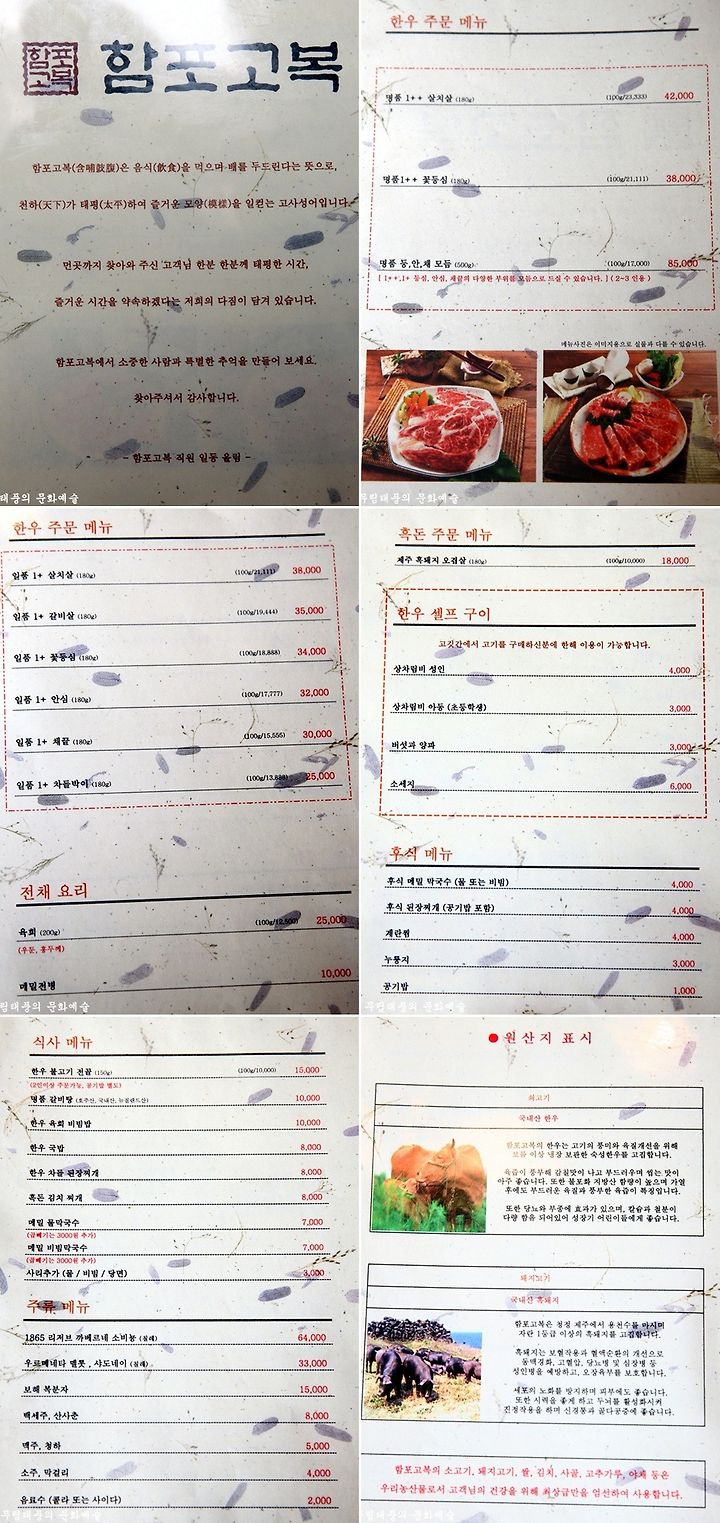 함포고복
함포고복
함포고복(含哺鼓腹)은 음식(飮食)을 먹으며 배를 두드린다는 뜻으로,
천하(天下)가 태평(太平)하여 즐거운 모양(模樣)을 일컫는 고사성어입니다.
먼곳까지 찾아와 주신 고객님 한분 한분께 태평한 시간,
즐거운 시간을 약속하겠다는 저희의 다짐이 담겨 있습니다.
함포고복에서 소중한 사람과 특별한 추억을 만들어 보세요.
찾아주셔서 감사합니다.
- 함포고복 직원 일동 올림 -
태풍의 문화예술
한우 주문 메뉴
명품 1++ 살치살 (180g) (100g/23,333) 42,000
명품1++ 꽃등심 (180g) (100g/21,111) 38,000
명품 등,안,채 모듬 (500g) (100g/17,000) 85,000
[ 1++,1+ 등심, 안심, 채끝의 다양한 부위를 모듬으로 드실 수 있습니다. ] ( 2~3 인용 )
메뉴사진은 이미지용으로 실물과 다를 수 있습니다.
무림태풍의 문화예술
한우 주문 메뉴
일품 1+ 살치살 (180g) (100g/21,111) 38,000
일품 1+ 갈비살 (180g) (100g/19,444) 35,000
일품 1+ 꽃등심 (180g) (100g/18,888) 34,000
일품 1+ 안심 (180g) (100g/17,777) 32,000
일품 1+ 채끝 (180g) (100g/15,555) 30,000
일품 1+ 차돌박이 (180g) (100g/13,888) 25,000
전채 요리
육회 (200g) (100g/12,500) 25,000
(우둔, 홍두께)
메밀전병 10,000
림태풍의 문화예술
흑돈 주문 메뉴
제주 흑돼지 오겹살 (180g) (100g/10,000) 18,000
한우 셀프 구이
고깃간에서 고기를 구매하신분에 한해 이용이 가능합니다.
상차림비 성인 4,000
상차림비 아동 (초등학생) 3,000
버섯과 양파 3,000
소세지 6,000
후식 메뉴
후식 메밀 막국수 (물 또는 비빔) 4,000
후식 된장찌개 (공기밥 포함) 4,000
계란찜 4,000
누룽지 3,000
공기밥 1,000
무림태풍의 문화예술
식사 메뉴
한우 불고기 전골 (150g) (100g/10,000) 15,000
(2인이상 주문가능, 공기밥 별도)
명품 갈비탕 (호주산, 국내산, 뉴질랜드산) 10,000
한우 육회 비빔밥 10,000
한우 국밥 8,000
한우 차돌 된장찌개 8,000
흑돈 김치 찌개 8,000
메밀 물막국수 7,000
(곱빼기는 3000원 추가)
메밀 비빔막국수 7,000
(곱빼기는 3000원 추가)
사리추가 (물 / 비빔 / 당면) 3,000
주류 메뉴
1865 리저브 까베르네 소비뇽 (칠레) 64,000
우르메네타 멜롯 , 샤도네이 (칠레) 33,000
보해 복분자 15,000
백세주, 산사춘 8,000
맥주, 청하 5,000
소주, 막걸리 4,000
음료수 (콜라 또는 사이다) 2,000
무림태풍의 문화예술
● 원산지 표시
쇠고기
국내산 한우
함포고복의 한우는 고기의 풍미와 육질개선을 위해
보름 이상 냉장 보관한 숙성한우를 고집합니다.
육즙이 풍부해 감칠맛이 나고 부드러우며 씹는 맛이
아주 좋습니다. 또한 불포화 지방산 함량이 높으며 가열
후에도 부드러운 육질과 풍부한 육즙이 특징입니다.
또한 당뇨와 부종에 효과가 있으며, 칼슘과 철분이
다량 함유 되어있어 성장기 어린이들에게 좋습니다.
돼지고기
국내산 흑돼지
함포고복은 청정 제주에서 용천수를 마시며
자란 1등급 이상의 흑돼지를 고집합니다.
흑돼지는 보혈작용과 혈액순환의 개선으로
동맥경화, 고혈압, 당뇨병 및 심장병 등
성인병을 예방하고, 오장육부를 보호합니다.
세포의 노화를 방지하며 피부에도 좋습니다.
또한 시력을 좋게 하고 두뇌를 활성화시켜
진정작용을 하며 신경통과 골다공증에 좋습니다.
함포고복의 소고기, 돼지고기, 쌀, 김치, 사골, 고추가루, 야채 등은
우리농산물로서 고객님의 건강을 위해 최상급만을 엄선하여 사용합니다.
무림태풍의 문화예술